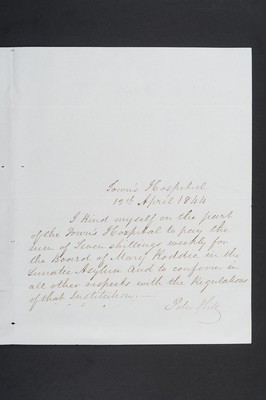 Town's Hospital
12th April 1844
I bind myself on the part
of the Town's Hospital to pay the
sum of Seven shillings weekly for
the Board of Mary Roddie in the
Lunatic Asylum and to conform in
all other respects with the Regulations
of that Institution. —